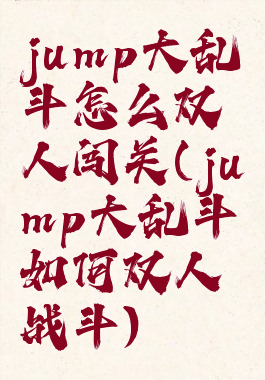 jump大乱
斗怎么双
人闯关(ju
mp大乱斗
如何双人
战斗)